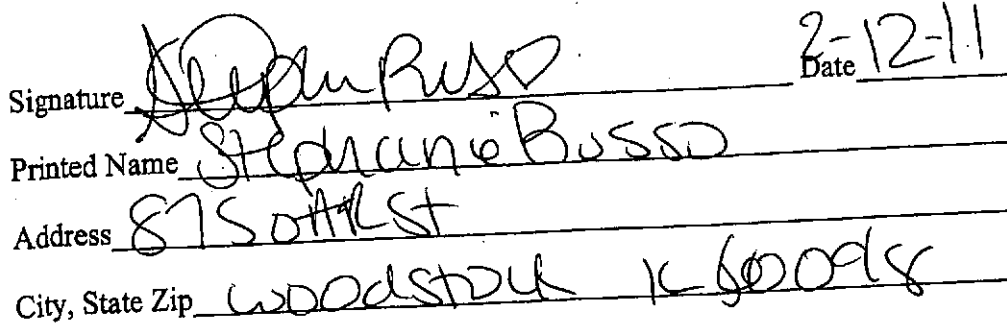 Signature Stephan Russo Date 2-12-11
Printed Name Stephanie Russo
Address 875 St
City, State Zip Woodstock IL 60098